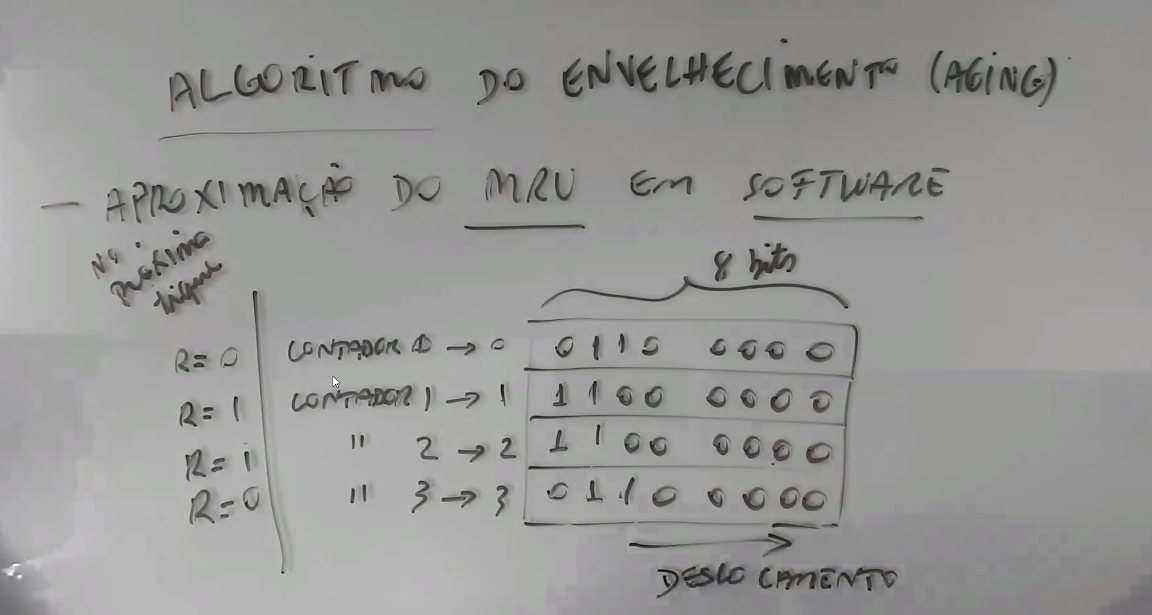 ALGORITMO DO ENVELHECIMENTO (AGING)
- APROXIMAÇÃO DO MRU EM SOFTWARE
Na próxima tique
8 bits
R=0 CONTADOR 0 → 0 0110 0000
R=1 CONTADOR 1 → 1 1100 0000
R=1 " 2 → 2 1100 0000
R=0 " 3 → 3 0110 0000
DESLOCAMENTO